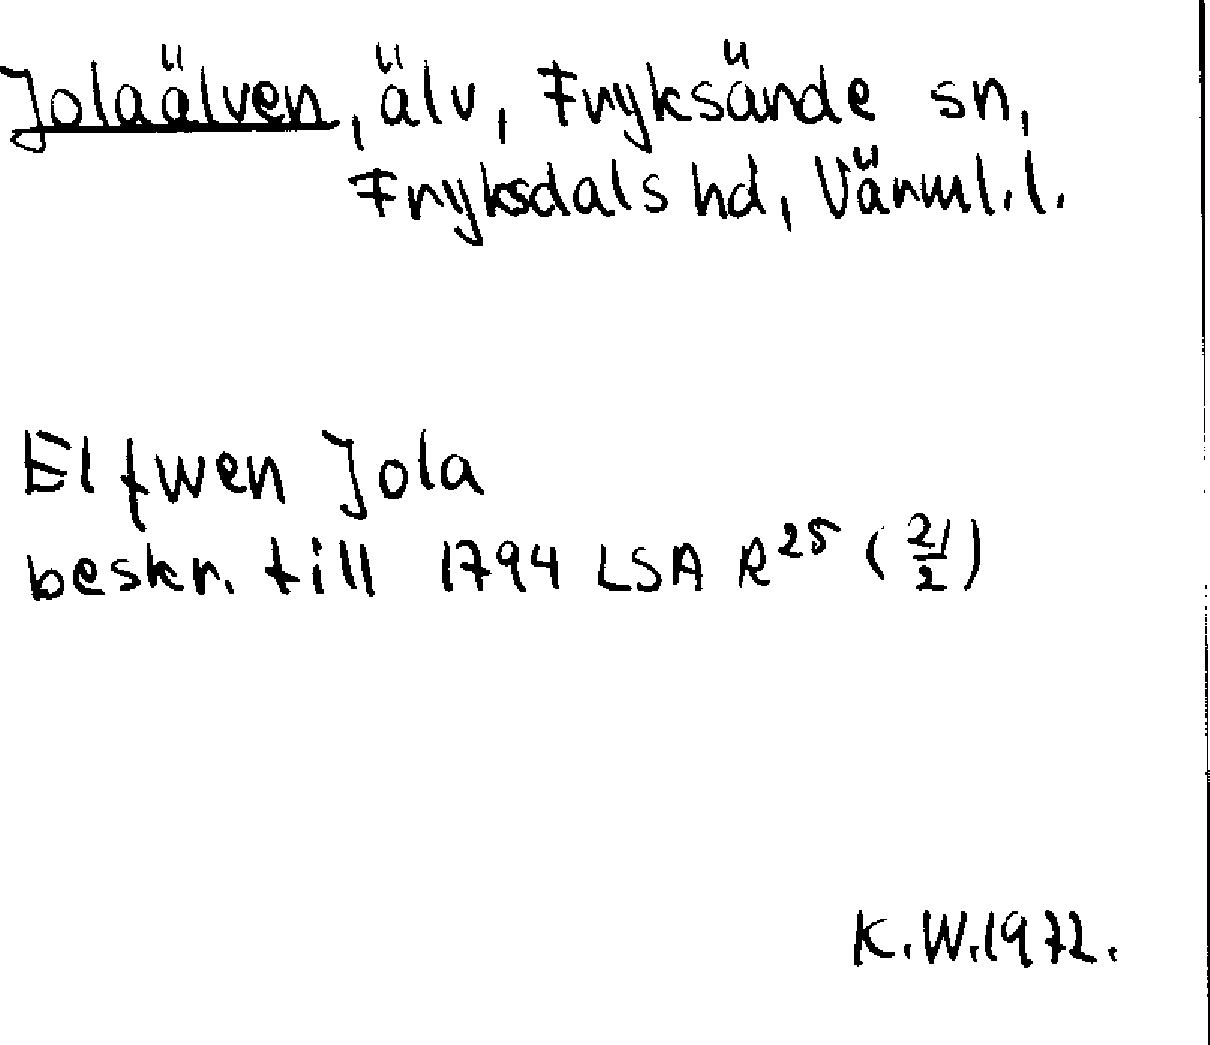 Jolaälven, älv, Fryksände sn,
Fryksdals hd, Värml.l.
Elfwen Jola
beskr. till 1794 LSA R25 (21/2)
K.W.1972.